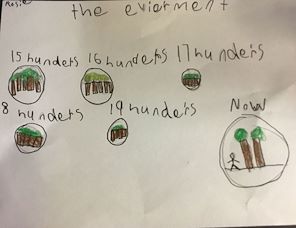 Rosie
the evierment
15 hunders 16 hunders 17 hunders
8 hunders 19 hunders Nown